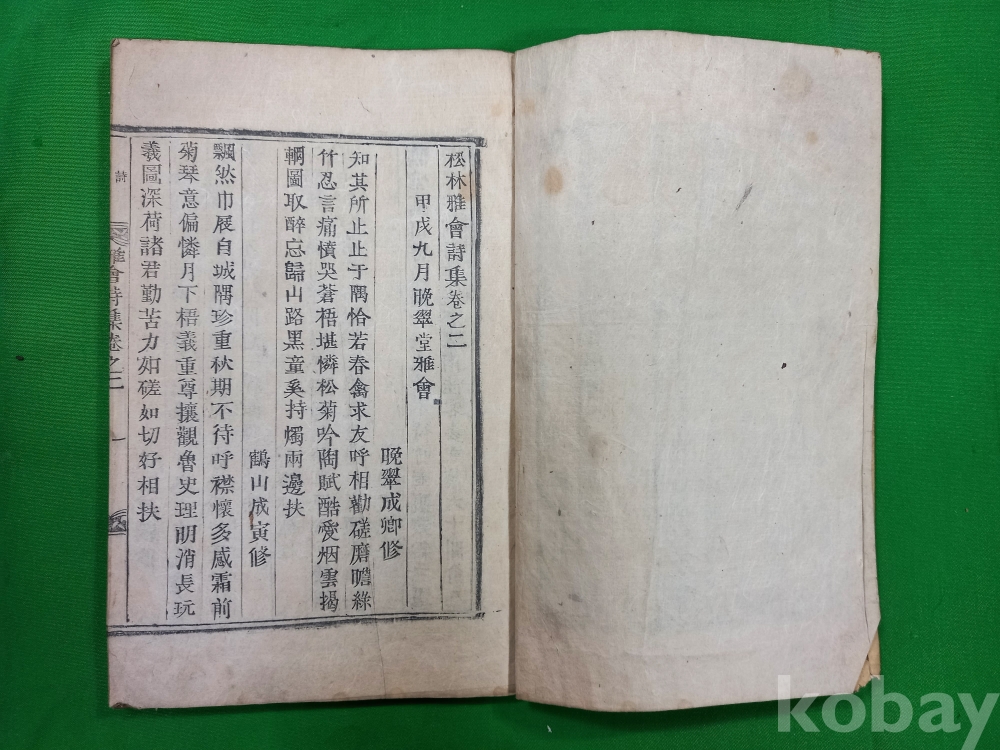 松林雅會詩集卷之二
甲戌九月晩翠堂雅會
晩翠成卿修
知其所止止于隅恰若春禽求友呼相勸磋磨瞻綠
竹忍言痛憤哭蒼梧堪憐松菊吟陶賦酷愛烟雲揭
輞圖取醉忘歸山路黑童奚持燭兩邊扶
鶴山成寅修
飄然巾屐自城隅珍重秋期不待呼襟懷多感霜前
菊琴意偏憐月下梧義重尊攘觀魯史理明消長玩
羲圖深荷諸君勤苦力如磋如切好相扶
詩
雅會詩集卷之二
一
kobay